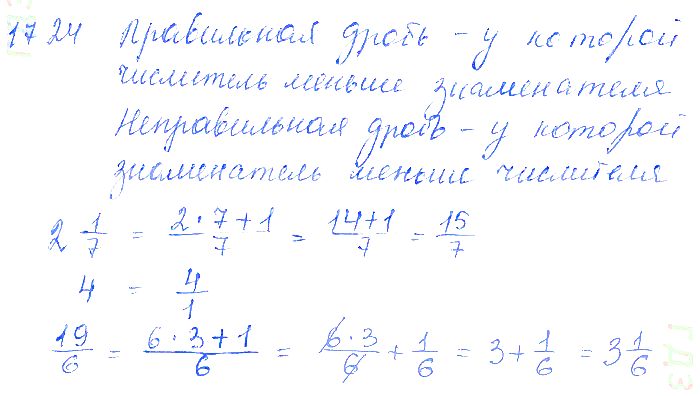 1724 Правильная дробь - у которой
числитель меньше знаменателя
Неправильная дробь - у которой
знаменатель меньше числителя
2 1/7 = (2·7+1)/7 = (14+1)/7 = 15/7
4 = 4/1
19/6 = (6·3+1)/6 = (6·3)/6 + 1/6 = 3 + 1/6 = 3 1/6
ГДЗ